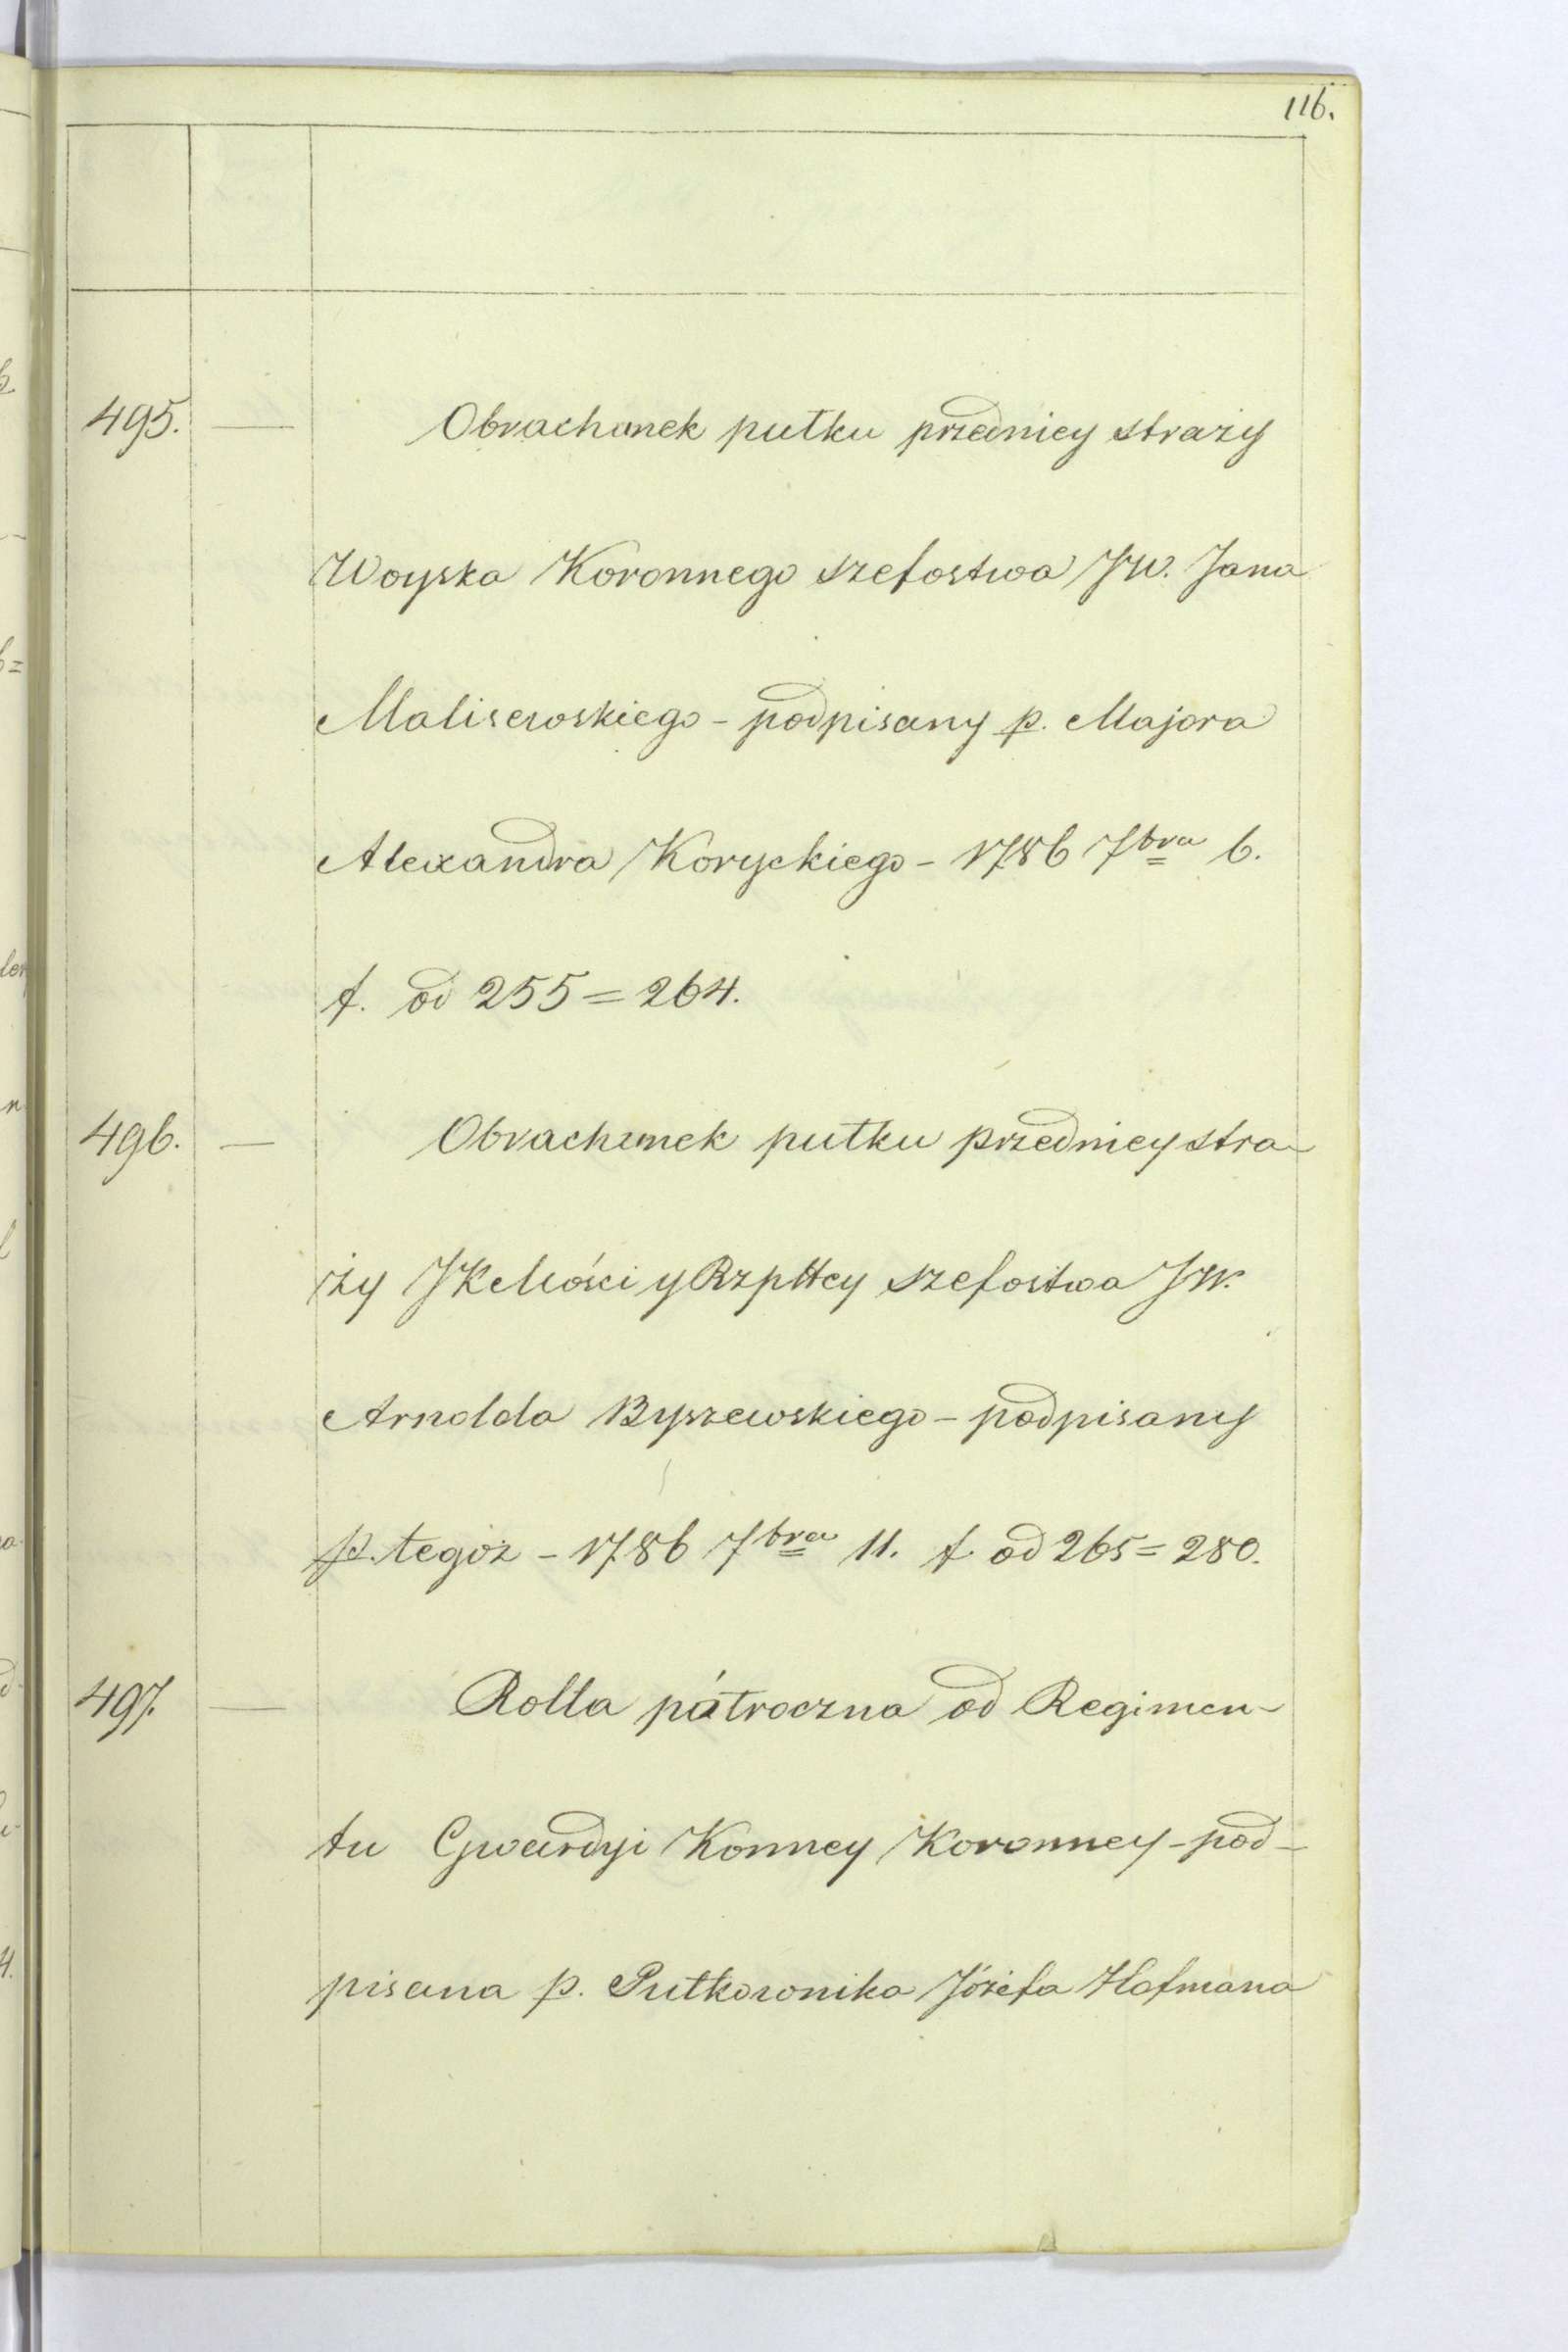 116.
495. — Obrachunek pułku przedniey straży
Woyska Koronnego szefostwa JW. Jana
Maliszewskiego - podpisany p. Majora
Alexandra Koryckiego - 1786 7bra 6.
f. od 255 = 264.
496. — Obrachunek pułku przedniey stra-
ży JKMości y Rzplttey szefostwa JW.
Arnolda Byszewskiego - podpisany
p. tegoż - 1786 7bra 11. f. od 265 = 280.
497. — Rolla półroczna od Regimen-
tu Gwardyi Konney Koronney - pod-
pisana p. Pułkownika Józefa Hofmana